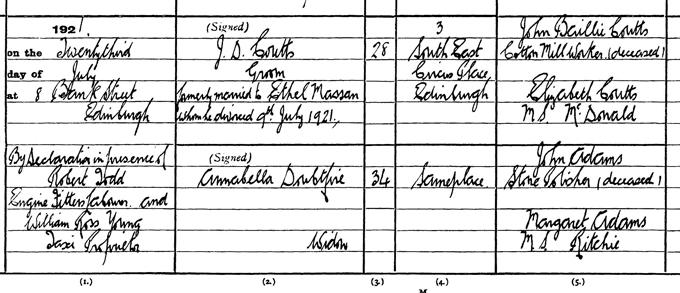 1921. (Signed) 3 John Baillie Coutts
on the Twentythird J. D. Coutts 28 South East Cotton Mill Worker (deceased)
day of July Groom Circus Place,
at 8 Bank Street formerly married to Ethel Massan Edinburgh Elizabeth Coutts
Edinburgh whom he divorced 9th July 1921. M.S. McDonald
By Declaration in presence of (Signed) John Adams
Robert Todd Annabella Doubtfire 34 Sameplace Stone Polisher (deceased)
Engine Fitters Labourer and
William Ross Young Margaret Adams
Taxi Proprietor Widow M.S. Ritchie
(1.) (2.) (3.) (4.) (5.)
M